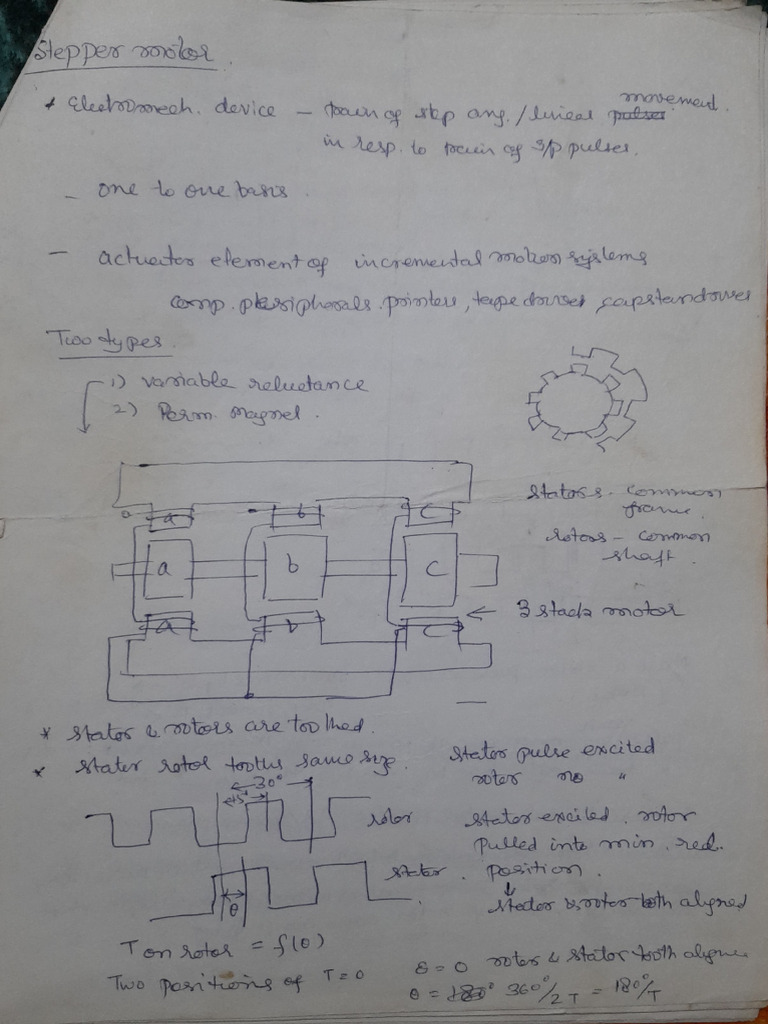 Stepper motor.
* Electromech. device – train of step ang./linear movement.
in resp. to train of i/p pulses.
– one to one basis.
– actuator element of incremental motion systems
comp. peripherals. printers, tape drives, capstan drives
Two types.
1) variable reluctance
2) Perm. magnet.
a b c
stators - common
frame.
rotors – common
shaft.
a b c
← 3 stack motor
a b c
* stator & rotors are toothed.
* stator rotor tooths same size.
stator pulse excited
rotor no "
30°
15°
rotor
stator excited. rotor
pulled into min. rel.
stator.
position.
θ
stator & rotor both aligned
T on rotor = f(θ)
Two positions of T=0
θ = 0 rotor & stator tooth aligne
θ = 360°/2T = 180°/T